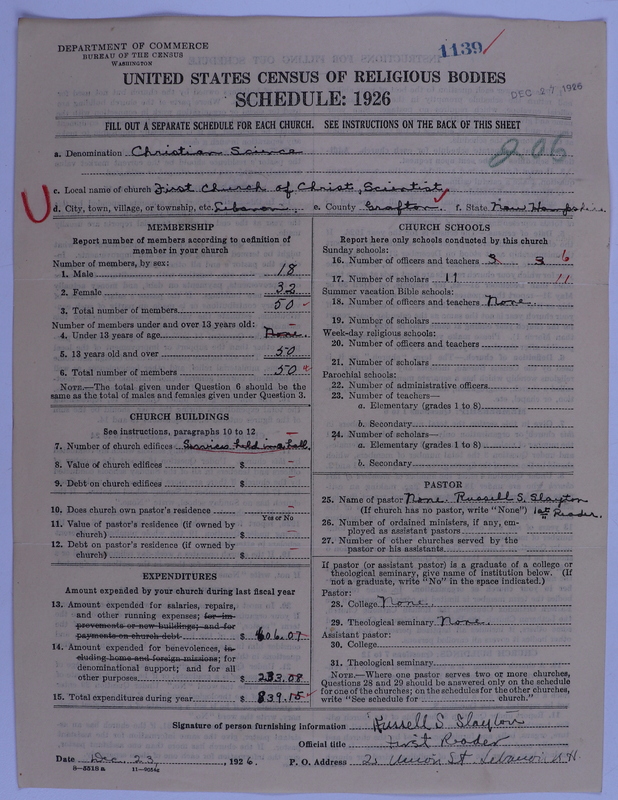 DEPARTMENT OF COMMERCE
BUREAU OF THE CENSUS
WASHINGTON
1139
DEC 27, 1926
UNITED STATES CENSUS OF RELIGIOUS BODIES
SCHEDULE: 1926
FILL OUT A SEPARATE SCHEDULE FOR EACH CHURCH. SEE INSTRUCTIONS ON THE BACK OF THIS SHEET
206
a. Denomination Christian Science
c. Local name of church First Church of Christ, Scientist,
d. City, town, village, or township, etc. Lebanon, e. County Grafton. f. State New Hampshire
MEMBERSHIP
Report number of members according to definition of
member in your church
Number of members, by sex:
1. Male 18
2. Female 32
3. Total number of members 50
Number of members under and over 13 years old:
4. Under 13 years of age None.
5. 13 years old and over 50
6. Total number of members 50
NOTE.—The total given under Question 6 should be
same as the total of males and females given under Question 3.
CHURCH BUILDINGS
See instructions, paragraphs 10 to 12
7. Number of church edifices Services held in a hall.
8. Value of church edifices $
9. Debt on church edifices $
10. Does church own pastor's residence
Yes or No
11. Value of pastor's residence (if owned by
church) $
12. Debt on pastor's residence (if owned by
church) $
EXPENDITURES
Amount expended by your church during last fiscal year
13. Amount expended for salaries, repairs,
and other running expenses; for im-
provements or new buildings; and for
payments on church debt $ 606.07
14. Amount expended for benevolences, in-
cluding home and foreign missions; for
denominational support; and for all
other purposes $ 233.08
15. Total expenditures during year $ 839.15
CHURCH SCHOOLS
Report here only schools conducted by this church
Sunday schools:
16. Number of officers and teachers 3 3 6
17. Number of scholars 11 11
Summer vacation Bible schools:
18. Number of officers and teachers None.
19. Number of scholars
Week-day religious schools:
20. Number of officers and teachers
21. Number of scholars
Parochial schools:
22. Number of administrative officers
23. Number of teachers—
a. Elementary (grades 1 to 8)
b. Secondary
24. Number of scholars—
a. Elementary (grades 1 to 8)
b. Secondary
PASTOR
25. Name of pastor None. Russell S. Slayton
(If church has no pastor, write "None") 1st Reader.
26. Number of ordained ministers, if any, em-
ployed as assistant pastors
27. Number of other churches served by the
pastor or his assistants
If pastor (or assistant pastor) is a graduate of a college or
theological seminary, give name of institution below. (If
not a graduate, write "No" in the space indicated.)
Pastor:
28. College None.
29. Theological seminary None.
Assistant pastor:
30. College
31. Theological seminary
NOTE.—Where one pastor serves two or more churches,
Questions 28 and 29 should be answered only on the schedule
for one of the churches; on the schedules for the other churches,
write "See schedule for church."
Signature of person furnishing information Russell S. Slayton
Official title First Reader
Date Dec. 23, 1926. P. O. Address 20 Union St Lebanon N.H.
8—5518a 11—9054